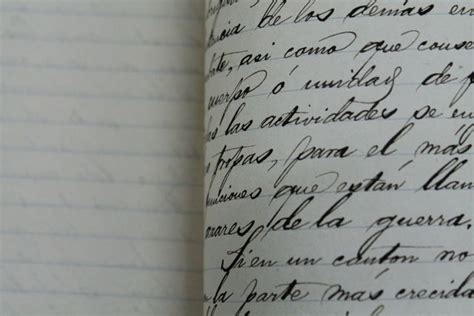 ncia de los demás en
parte, asi como que couse
cuerpo ó unidad de f
las las actividades se en
tropas, para el más
niciones que están llam
zares de la guerra.
Si en un canton no
la parte más crecida